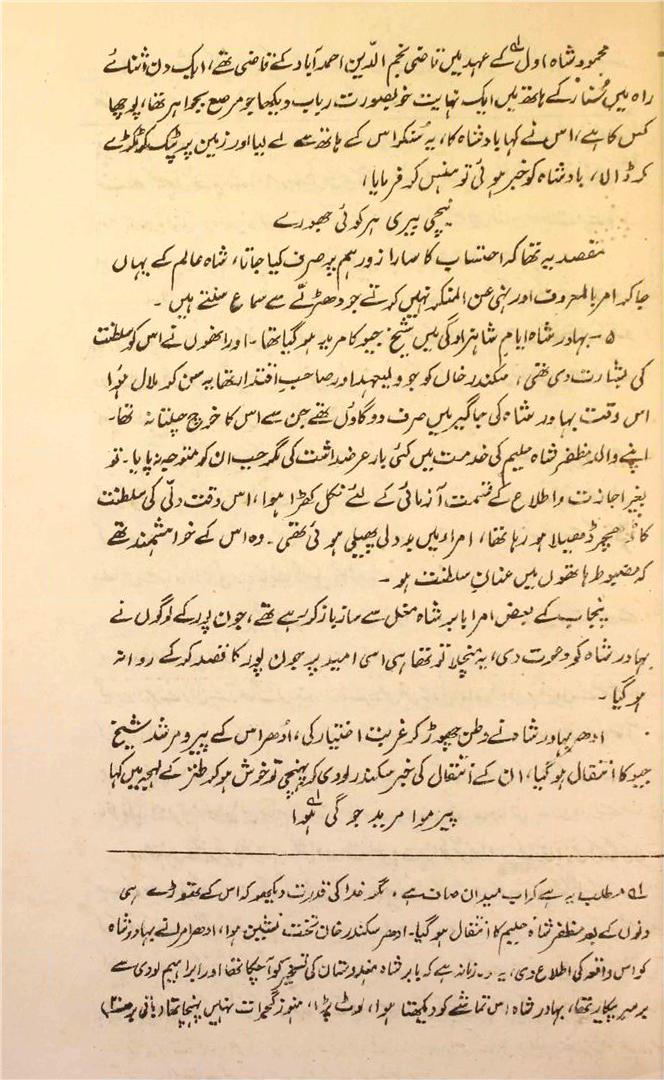 محمود شاہ اول کے عہد میں قاضی نجم الدین احمد آباد کے قاضی تھے، ایک دن اثنائے
راہ میں ستار کے ہاتھ میں ایک نہایت خوبصورت رباب دیکھا جو مرصع بجواہر تھا، پوچھا
کس کا ہے، اس نے کہا بادشاہ کا، یہ سنکر اس کے ہاتھ سے لے لیا اور زمین پر پٹک کر ٹکڑے
کر ڈالا، بادشاہ کو خبر ہوئی تو ہنس کر فرمایا،
نیچی بیری ہر کوئی جھورے
مقصد یہ تھا کہ احتساب کا سارا زور ہم پر صرف کیا جاتا، شاہ عالم کے یہاں
جا کر امر بالمعروف اور نہی عن المنکر نہیں کرتے جو دھڑلے سے سماع سنتے ہیں۔
۵۔ بہادر شاہ ایام شاہزادگی میں شیخ جیو کا مرید ہو گیا تھا۔ اور انھوں نے اس کو سلطنت
کی بشارت دی تھی، سکندر خاں کو جو ولیعہد اور صاحب اقتدار تھا یہ سن کر ملال ہوا
اس وقت بہادر شاہ کی جاگیر میں صرف دو گاؤں تھے جن سے اس کا خرچ چلتا نہ تھا۔
اپنے والد مظفر شاہ حلیم کی خدمت میں کئی بار عرضداشت کی مگر جب ان کو متوجہ نہ پایا۔ تو
بغیر اجازت و اطلاع کے قسمت آزمائی کے لئے نکل کھڑا ہوا، اس وقت دلّی کی سلطنت
کا ڈھچر ڈھیلا ہو رہا تھا، امراء میں بددلی پھیلی ہوئی تھی۔ وہ اس کے خواہشمند تھے
کہ مضبوط ہاتھوں میں عنان سلطنت ہو۔
پنجاب کے بعض امرا بابر شاہ مغل سے سازباز کر رہے تھے، جون پور کے لوگوں نے
بہادر شاہ کو دعوت دی، یہ منچلا تو تھا ہی اسی امید پر جون پور کا قصد کر کے روانہ
ہو گیا۔
ادھر بہادر شاہ نے وطن چھوڑ کر غربت اختیار کی، ادھر اس کے پیر و مرشد شیخ
جیو کا انتقال ہو گیا، ان کے انتقال کی خبر سکندر لودی کو پہنچی تو خوش ہو کر طنز کے لہجہ میں کہا
پیر موا مرید جوگی ہوا
۱؎ مطلب یہ ہے کہ اب میدان صاف ہے۔ مگر خدا کی قدرت دیکھو کہ اس کے تھوڑے ہی
دنوں کے بعد مظفر شاہ حلیم کا انتقال ہو گیا۔ ادھر سکندر خان تخت نشین ہوا، ادھر امرا نے بہادر شاہ
کو اس واقعہ کی اطلاع دی، یہ وہ زمانہ ہے کہ بابر شاہ ہندوستان کی تسخیر کو آچکا تھا اور ابراہیم لودی سے
برسر پیکار تھا، بہادر شاہ اس تماشے کو دیکھتا ہوا، لوٹ پڑا، ہنوز گجرات نہیں پہنچا تھا (باقی بر